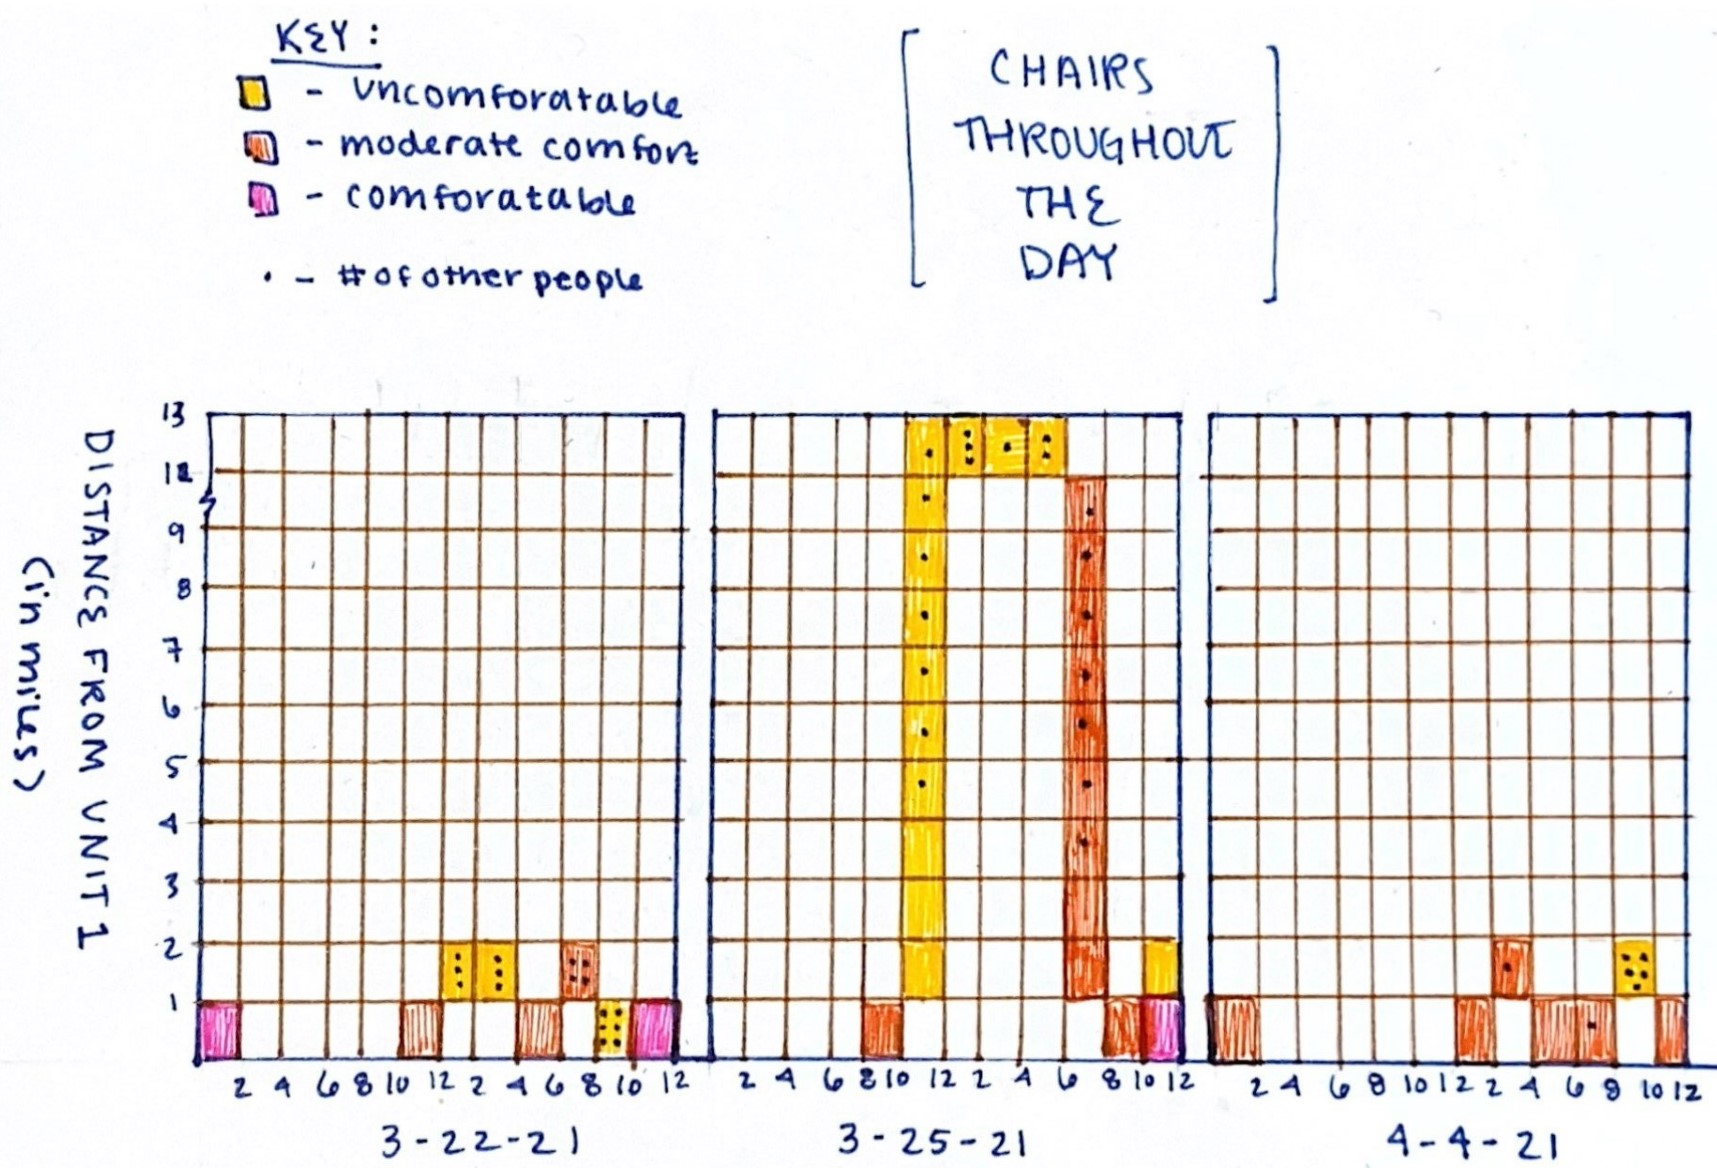 KEY:
- uncomforatable
- moderate comfort
- comforatable
. - # of other people
CHAIRS
THROUGHOUT
THE
DAY
DISTANCE FROM UNIT 1
(in miles)
13
12
9
8
7
6
5
4
3
2
1
2 4 6 8 10 12 2 4 6 8 10 12
3-22-21
2 4 6 8 10 12 2 4 6 8 10 12
3-25-21
2 4 6 8 10 12 2 4 6 8 10 12
4-4-21